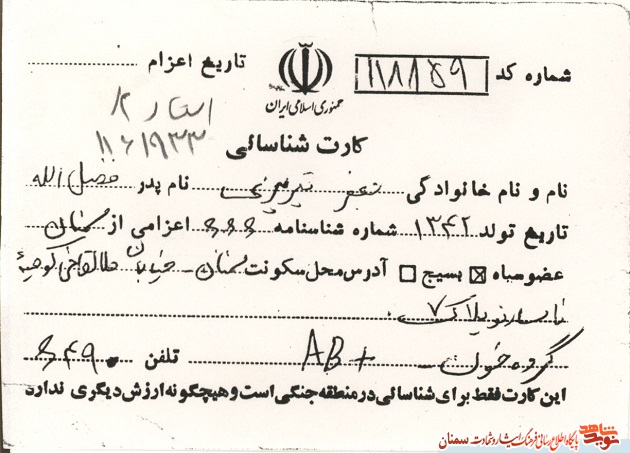 شماره کد ۱۱۸۸۵۹
جمهوری اسلامی ایران
تاریخ اعزام
کارت شناسائی
نام و نام خانوادگی جعفر نام پدر فضل الله
تاریخ تولد ۱۳۴۲ شماره شناسنامه اعزامی از سمنان
عضو سپاه بسیج آدرس محل سکونت سمنان - خیابان طالقانی کوچه
پلاک ۷
گروه خون AB+ تلفن
این کارت فقط برای شناسائی در منطقه جنگی است و هیچگونه ارزش دیگری ندارد
نوید شاهد
پایگاه اطلاع رسانی فرهنگ ایثار و شهادت سمنان